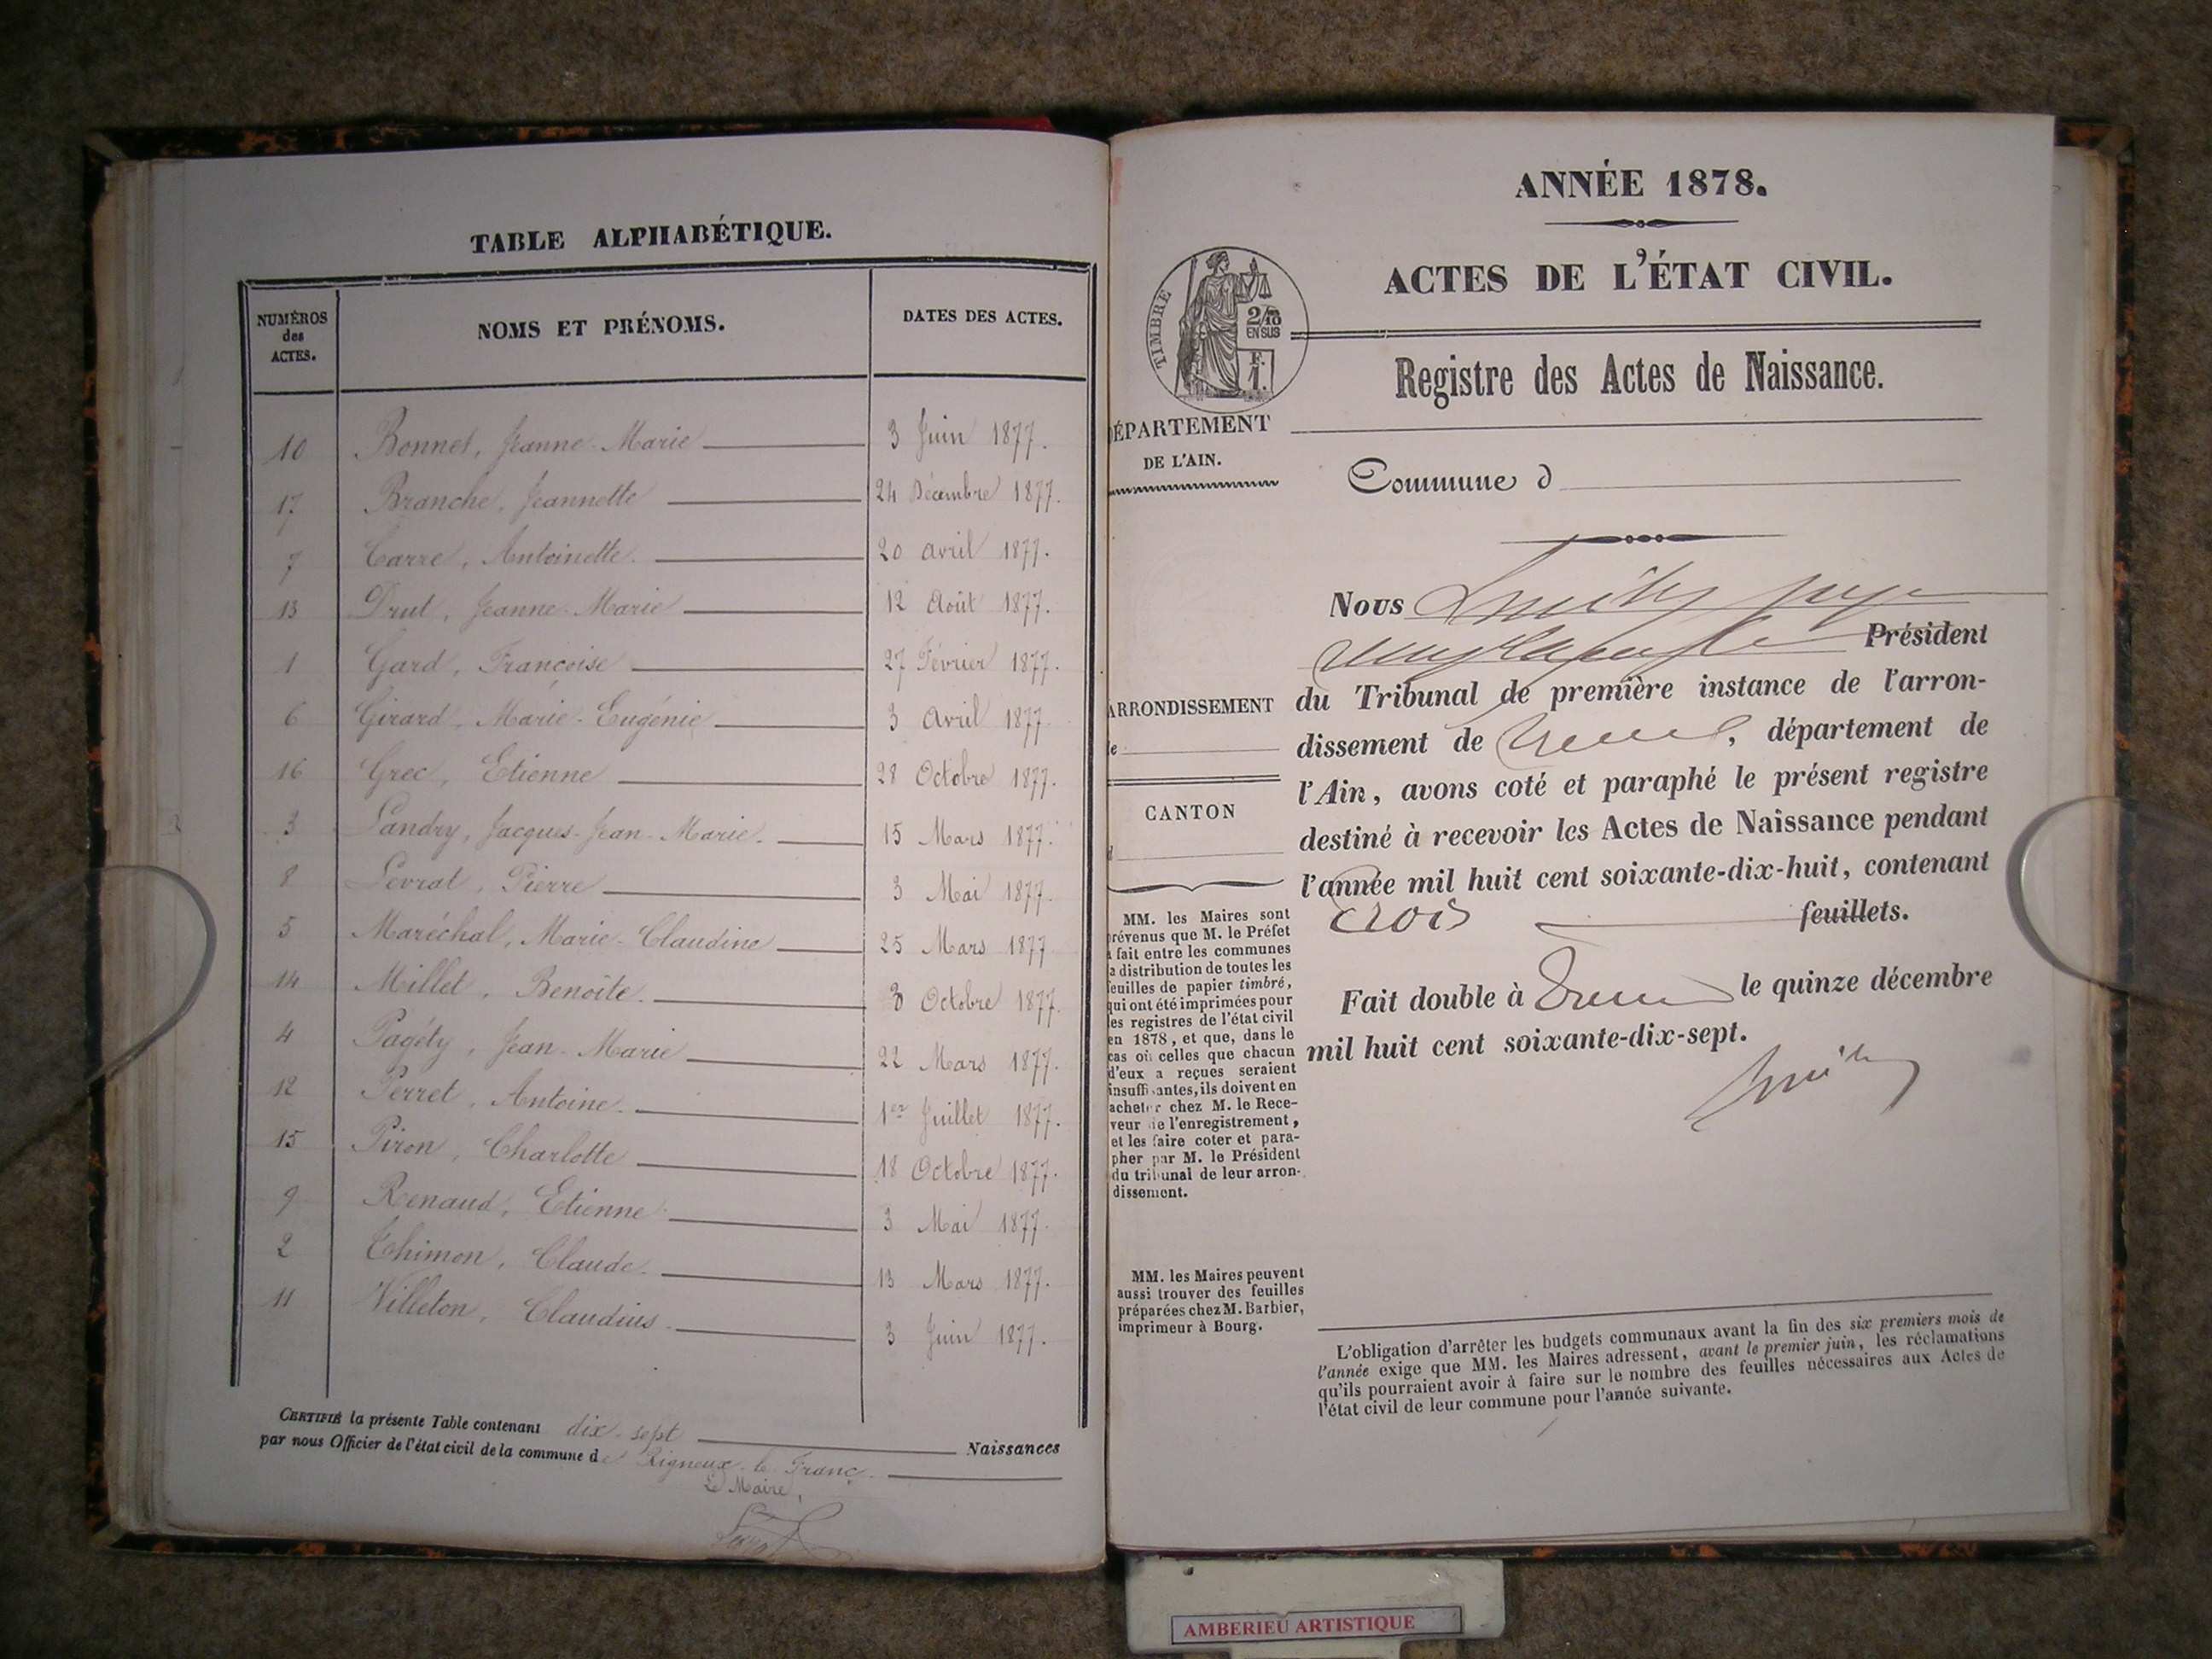 TABLE ALPHABÉTIQUE.
NUMÉROS des ACTES. NOMS ET PRÉNOMS. DATES DES ACTES.
10 Bonnet, Jeanne-Marie 3 Juin 1877.
17 Branche, Jeannette 24 Décembre 1877.
7 Carre, Antoinette. 20 avril 1877.
13 Drut, Jeanne-Marie 12 Août 1877.
1 Gard, Françoise 27 Février 1877.
6 Girard, Marie-Eugénie 3 Avril 1877
16 Grec, Etienne 28 Octobre 1877.
3 Landry, Jacques-Jean-Marie. 15 Mars 1877.
8 Levrat, Pierre 3 Mai 1877.
5 Maréchal, Marie-Claudine 25 Mars 1877
14 Millet, Benoîte. 3 Octobre 1877.
4 Pagéty, Jean-Marie 22 Mars 1877.
12 Perret, Antoine. 1er Juillet 1877.
15 Piron, Charlotte 18 Octobre 1877.
9 Renaud, Etienne 3 Mai 1877.
2 Thimon, Claude. 13 Mars 1877.
11 Villeton, Claudius. 3 Juin 1877.
CERTIFIÉ la présente Table contenant dix-sept Naissances
par nous Officier de l'état civil de la commune de Rigneux-le-Franc.
Le Maire,
ANNÉE 1878.
ACTES DE L'ÉTAT CIVIL.
TIMBRE
2/10
EN SUS
F.
1.
Registre des Actes de Naissance.
DÉPARTEMENT
DE L'AIN.
Commune d
Nous
Président
ARRONDISSEMENT
du Tribunal de première instance de l'arron-
dissement de , département de
l'Ain, avons coté et paraphé le présent registre
CANTON
destiné à recevoir les Actes de Naissance pendant
l'année mil huit cent soixante-dix-huit, contenant
trois feuillets.
Fait double à le quinze décembre
mil huit cent soixante-dix-sept.
MM. les Maires sont
prévenus que M. le Préfet
a fait entre les communes
la distribution de toutes les
feuilles de papier timbré,
qui ont été imprimées pour
les registres de l'état civil
en 1878, et que, dans le
cas où celles que chacun
d'eux a reçues seraient
insuffisantes, ils doivent en
acheter chez M. le Rece-
veur de l'enregistrement,
et les faire coter et para-
pher par M. le Président
du tribunal de leur arron-
dissement.
MM. les Maires peuvent
aussi trouver des feuilles
préparées chez M. Barbier,
imprimeur à Bourg.
L'obligation d'arrêter les budgets communaux avant la fin des six premiers mois de
l'année exige que MM. les Maires adressent, avant le premier juin, les réclamations
qu'ils pourraient avoir à faire sur le nombre des feuilles nécessaires aux Actes de
l'état civil de leur commune pour l'année suivante.
AMBERIEU ARTISTIQUE